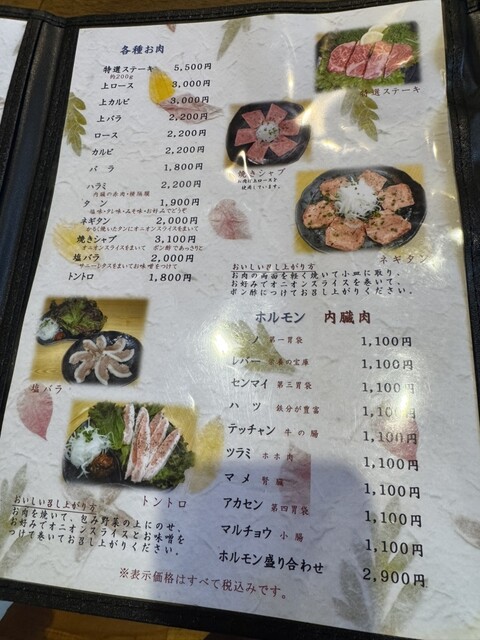 各種お肉
特選ステーキ 5,500円
約200g
上ロース 3,000円
上カルビ 3,000円
上バラ 2,200円
ロース 2,200円
カルビ 2,200円
バラ 1,800円
ハラミ 2,200円
タン 1,900円
塩味・タレ味・みそ味・お好みでどうぞ
ネギタン 2,000円
かるく焼いたタンにオニオンスライスをまいて
焼きシャブ 3,100円
オニオンスライスをまいて ポン酢であっさりと
塩バラ 2,000円
サニーレタスをまいてお味噌をつけて
トントロ 1,800円
特選ステーキ
焼きシャブ
ネギタン
おいしい召し上がり方
お肉の両面を軽く焼いて小皿に取り、
お好みでオニオンスライスを巻いて、
ポン酢につけてお召し上がりください。
塩バラ
トントロ
おいしい召し上がり方
お肉を焼いて、包み野菜の上にのせ、
お好みでオニオンスライスとお味噌を
つけて巻いてお召し上がりください。
ホルモン 内臓肉
ミノ 第一胃袋 1,100円
レバー 栄養の宝庫 1,100円
センマイ 第三胃袋 1,100円
ハツ 鉄分が豊富 1,100円
テッチャン 牛の腸 1,100円
ツラミ ホホ肉 1,100円
マメ 腎臓 1,100円
アカセン 第四胃袋 1,100円
マルチョウ 小腸 1,100円
ホルモン盛り合わせ 2,900円
※表示価格はすべて税込みです。